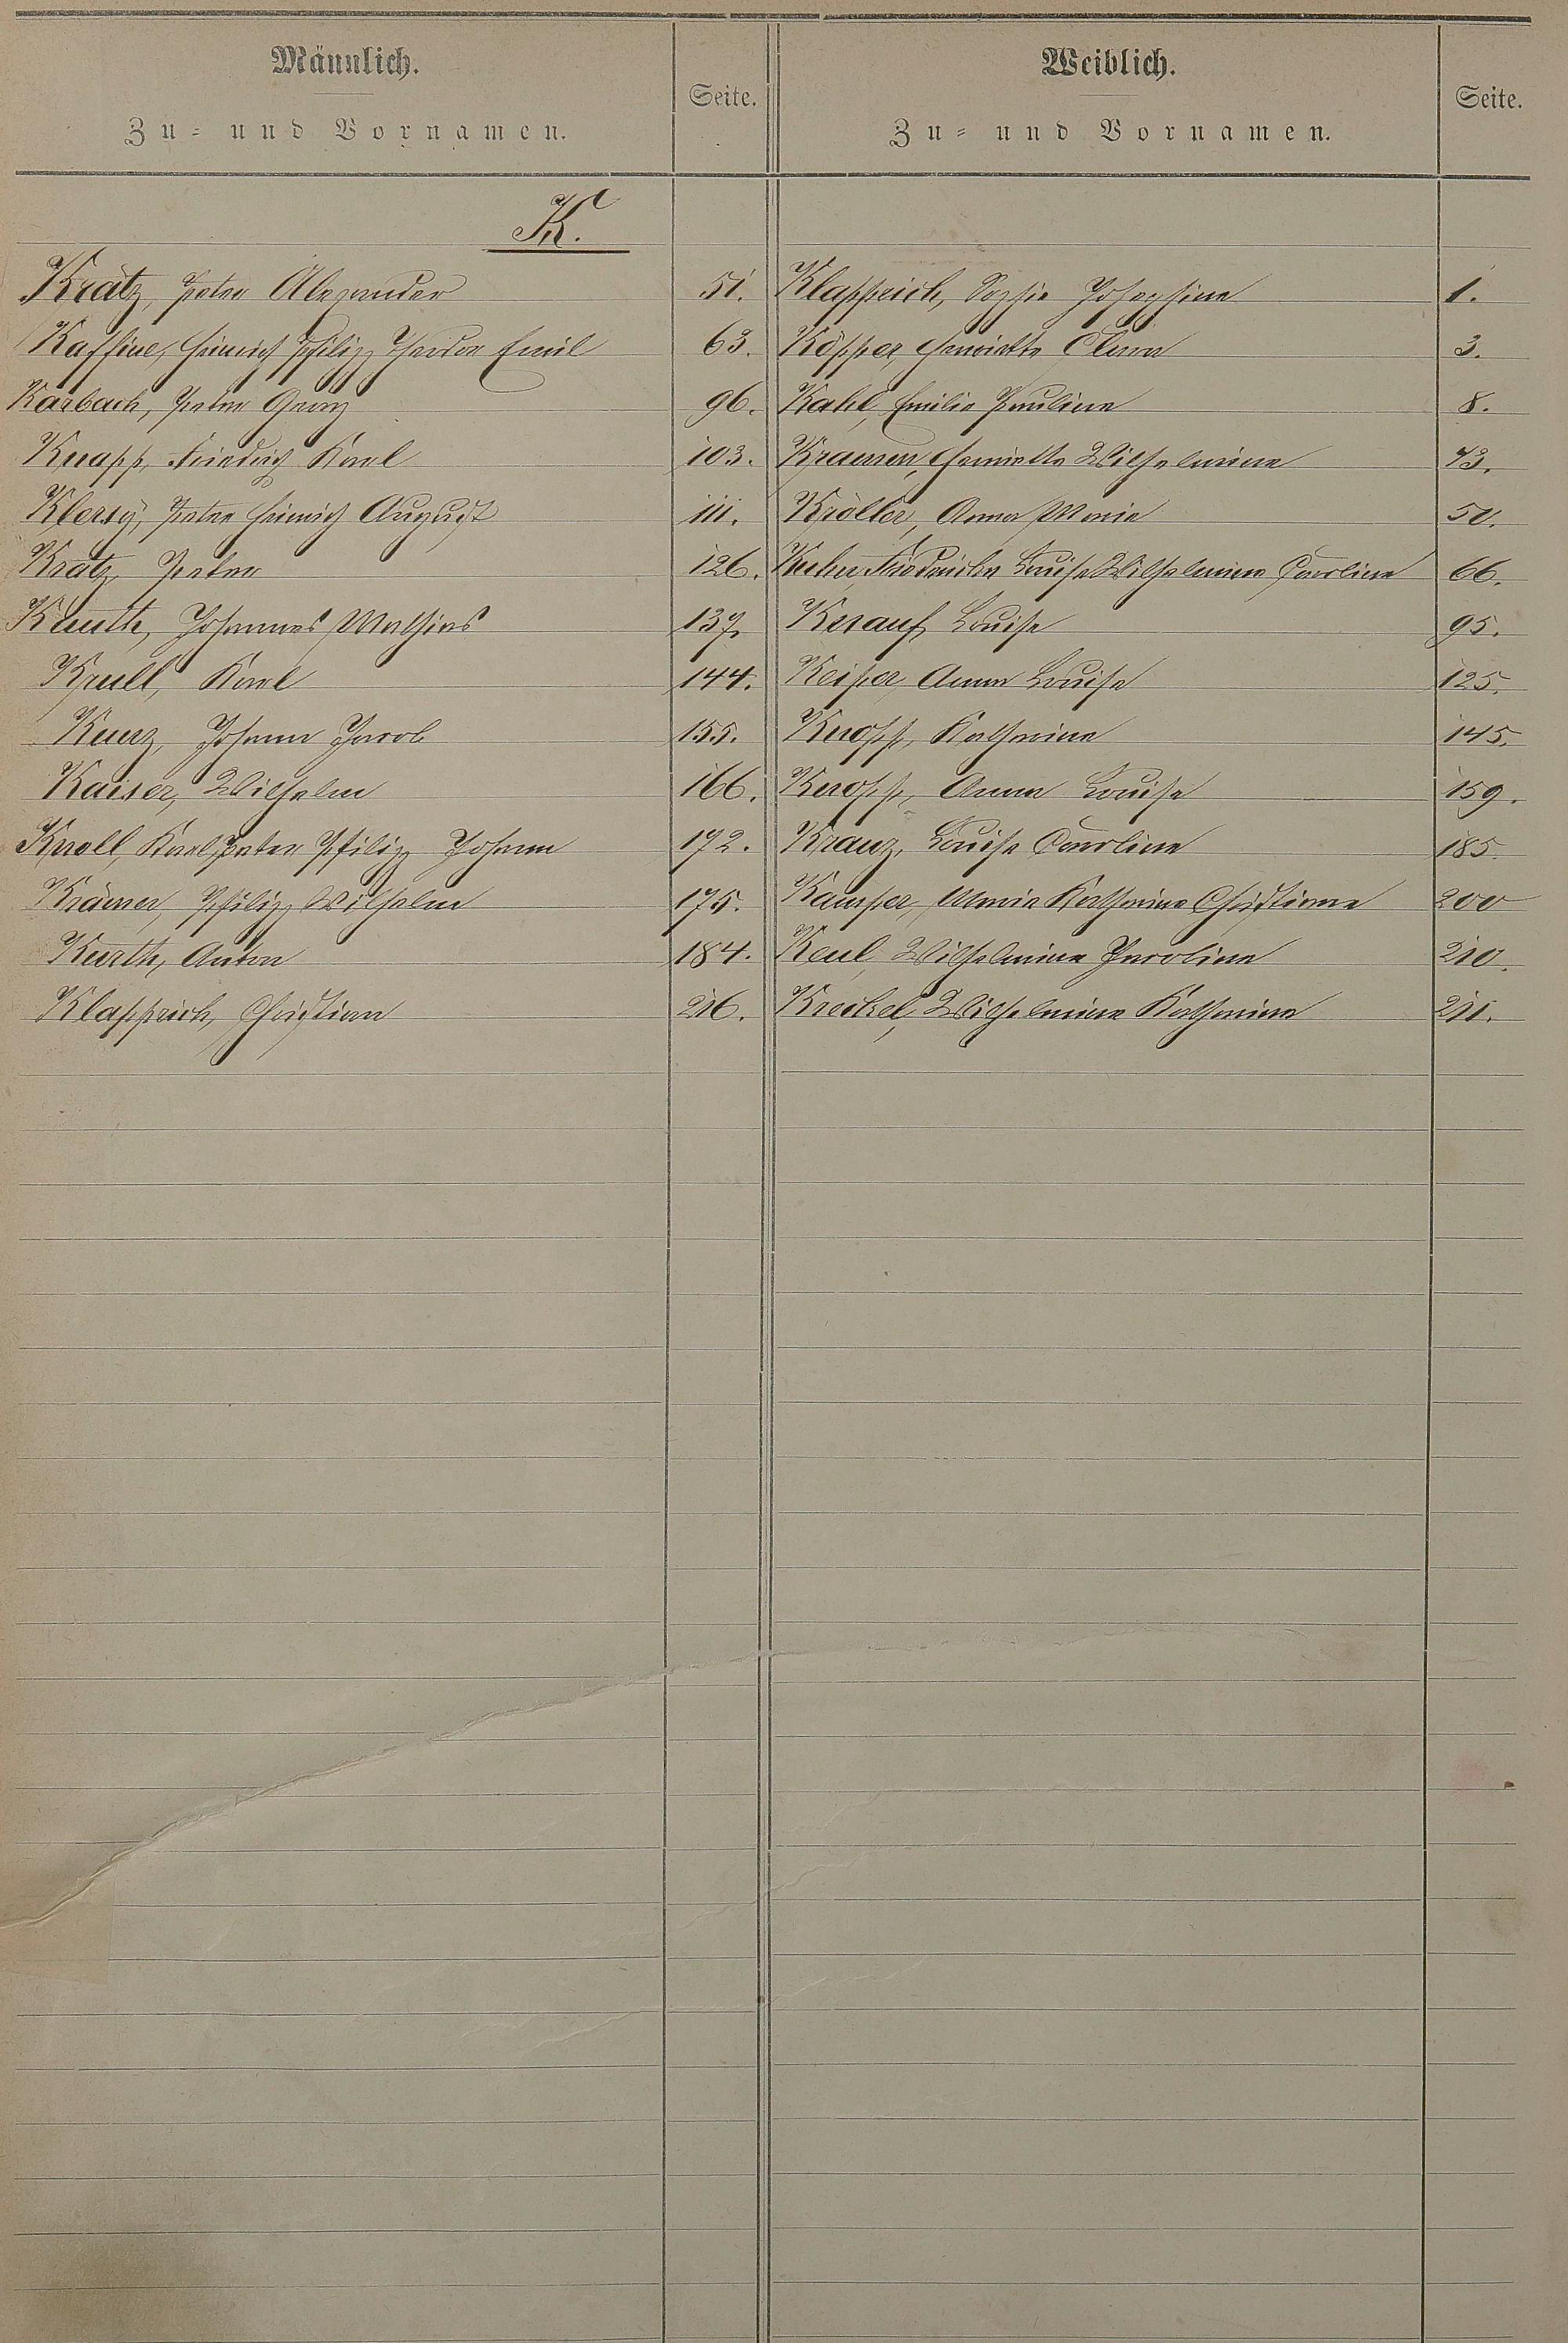 Männlich.
Zu- und Vornamen.
Seite.
Weiblich.
Zu- und Vornamen.
Seite.
K.
Krätz, Peter Alexander 51. Klapprich, Sophie Josephine 1.
Kaffine, Heinrich Philipp Theodor Emil 63. Köpper, Henriette Clara 3.
Karbach, Peter Georg 96. Kahl, Emilie Pauline 8.
Knapp, Friedrich Karl 103. Kraemer, Henriette Wilhelmine 43.
Klersÿ, Peter Heinrich August 111. Kröller, Anna Maria 50.
Krätz, Peter 126. Friedericke Louise Wilhelmine Caroline 66.
Kauth, Johannes Mathias 137. Knauf, Louise 95.
Krull, Karl 144. Keiper, Anna Louise 125.
Kunz, Johann Jacob 155. Knopp, Katharina 145.
Kaiser, Wilhelm 166. Knopp, Anna Louise 159.
Knoll, Karl Peter Philipp Johann 172. Kranz, Louise Caroline 185.
Krämer, Philipp Wilhelm 175. Kamper, Maria Katharina Christiane 200
Kurth, Anton 184. Keul, Wilhelmine Karoline 210.
Klapprich, Christian 216. Kreckel, Wilhelmine Katharina 211.